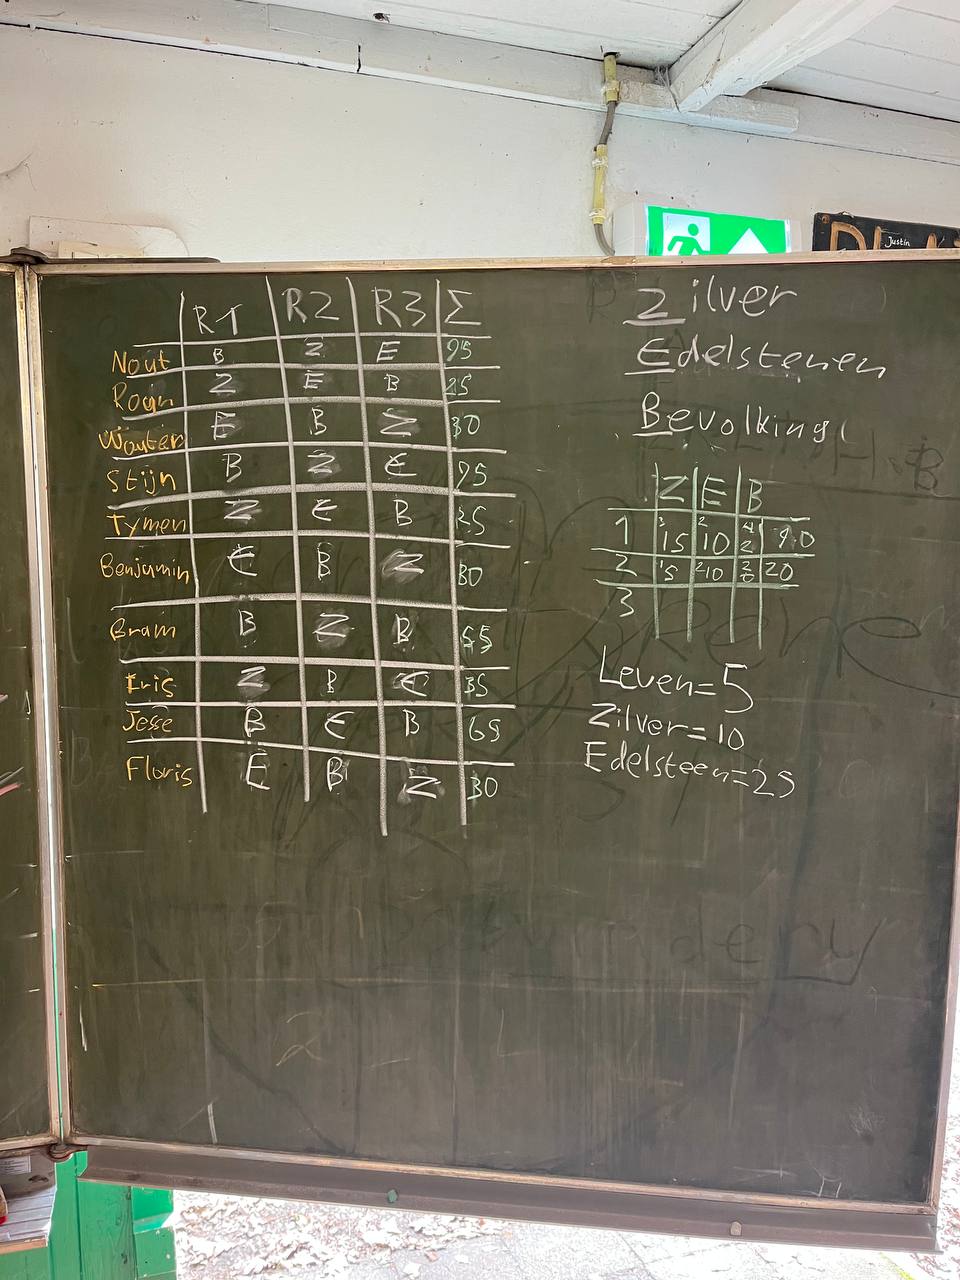 Justin
R1 R2 R3 Σ
Nout B Z E 95
Z E B 25
Wouter E B Z 30
Stijn B Z E 95
Tymen Z E B 25
Benjamin E B Z 30
Bram B Z B 55
Iris Z B E 35
Jesse B E B 65
Floris E B Z 30
Zilver
Edelstenen
Bevolking
Z E B
1 15 10 90
2 15 10 20
3
Leven=5
Zilver=10
Edelsteen=25